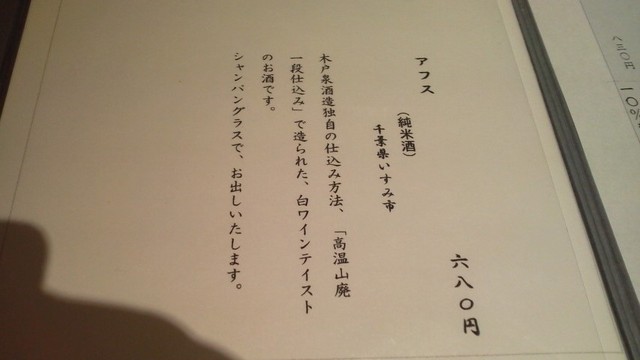 アフス
(純米酒)
千葉県いすみ市
六八〇円
木戸泉酒造独自の仕込み方法、「高温山廃
一段仕込み」で造られた、白ワインテイスト
のお酒です。
シャンパングラスで、お出しいたします。
一〇%